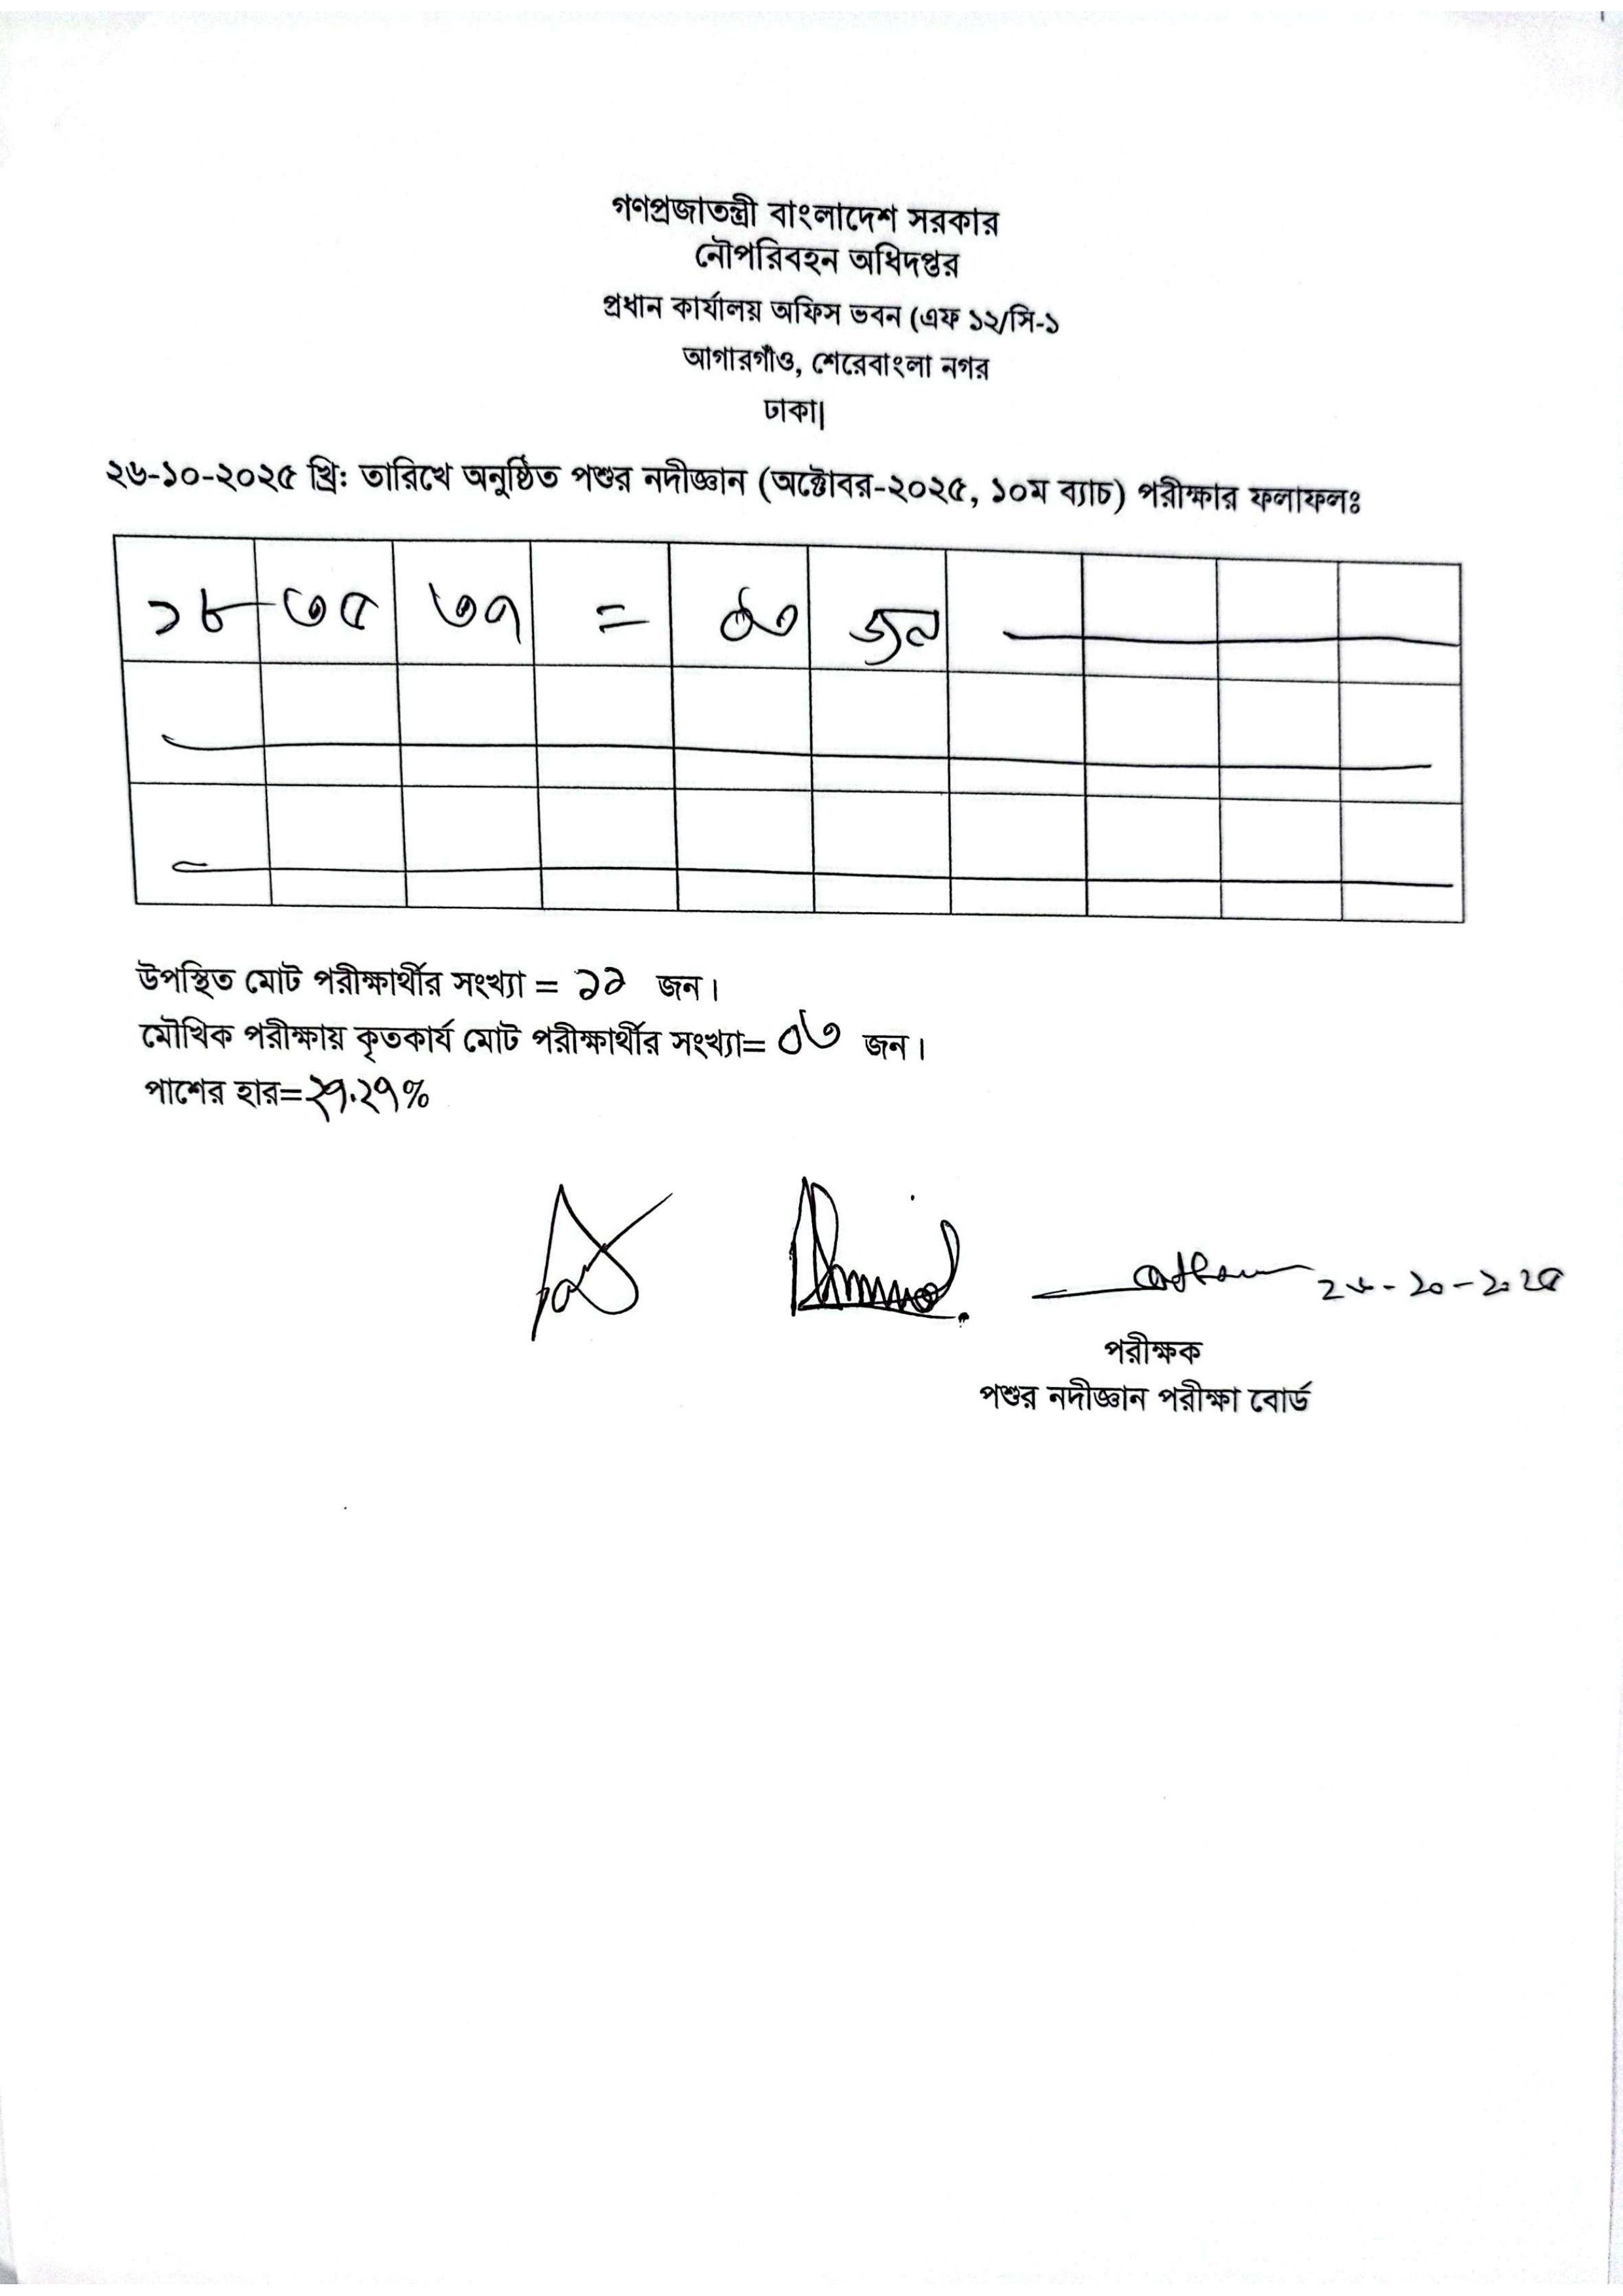 গণপ্রজাতন্ত্রী বাংলাদেশ সরকার
নৌপরিবহন অধিদপ্তর
প্রধান কার্যালয় অফিস ভবন (এফ ১২/সি-১
আগারগাঁও, শেরেবাংলা নগর
ঢাকা|
২৬-১০-২০২৫ খ্রি: তারিখে অনুষ্ঠিত পশুর নদীজ্ঞান (অক্টোবর-২০২৫, ১০ম ব্যাচ) পরীক্ষার ফলাফলঃ
১৮ ৩৫ ৩৭ = ০৩ জন
উপস্থিত মোট পরীক্ষার্থীর সংখ্যা = ১১ জন।
মৌখিক পরীক্ষায় কৃতকার্য মোট পরীক্ষার্থীর সংখ্যা= ০৩ জন।
পাশের হার=২৭.২৭%
২৬-১০-২০২৫
পরীক্ষক
পশুর নদীজ্ঞান পরীক্ষা বোর্ড